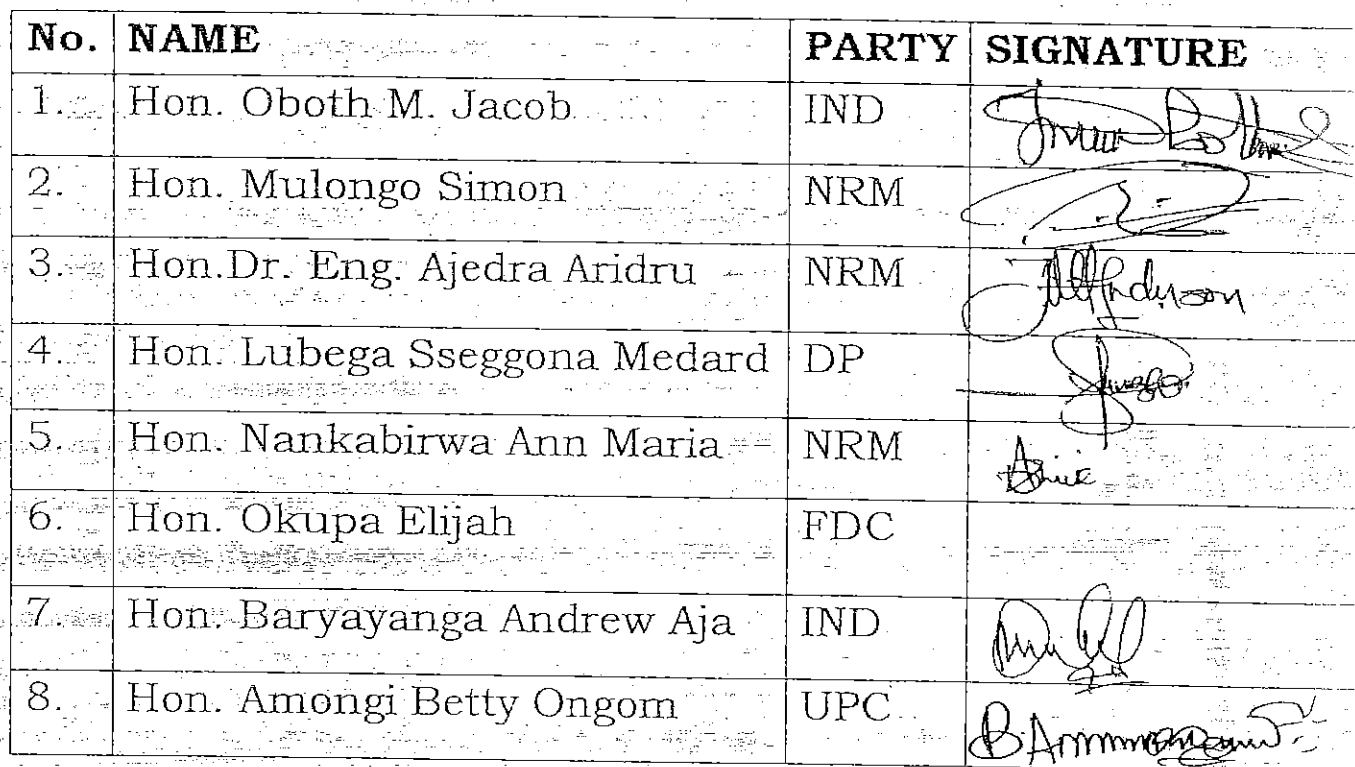 No. NAME PARTY SIGNATURE
1. Hon. Oboth M. Jacob IND
2. Hon. Mulongo Simon NRM
3. Hon.Dr. Eng. Ajedra Aridru NRM
4. Hon. Lubega Sseggona Medard DP
5. Hon. Nankabirwa Ann Maria NRM
6. Hon. Okupa Elijah FDC
7. Hon. Baryayanga Andrew Aja IND
8. Hon. Amongi Betty Ongom UPC